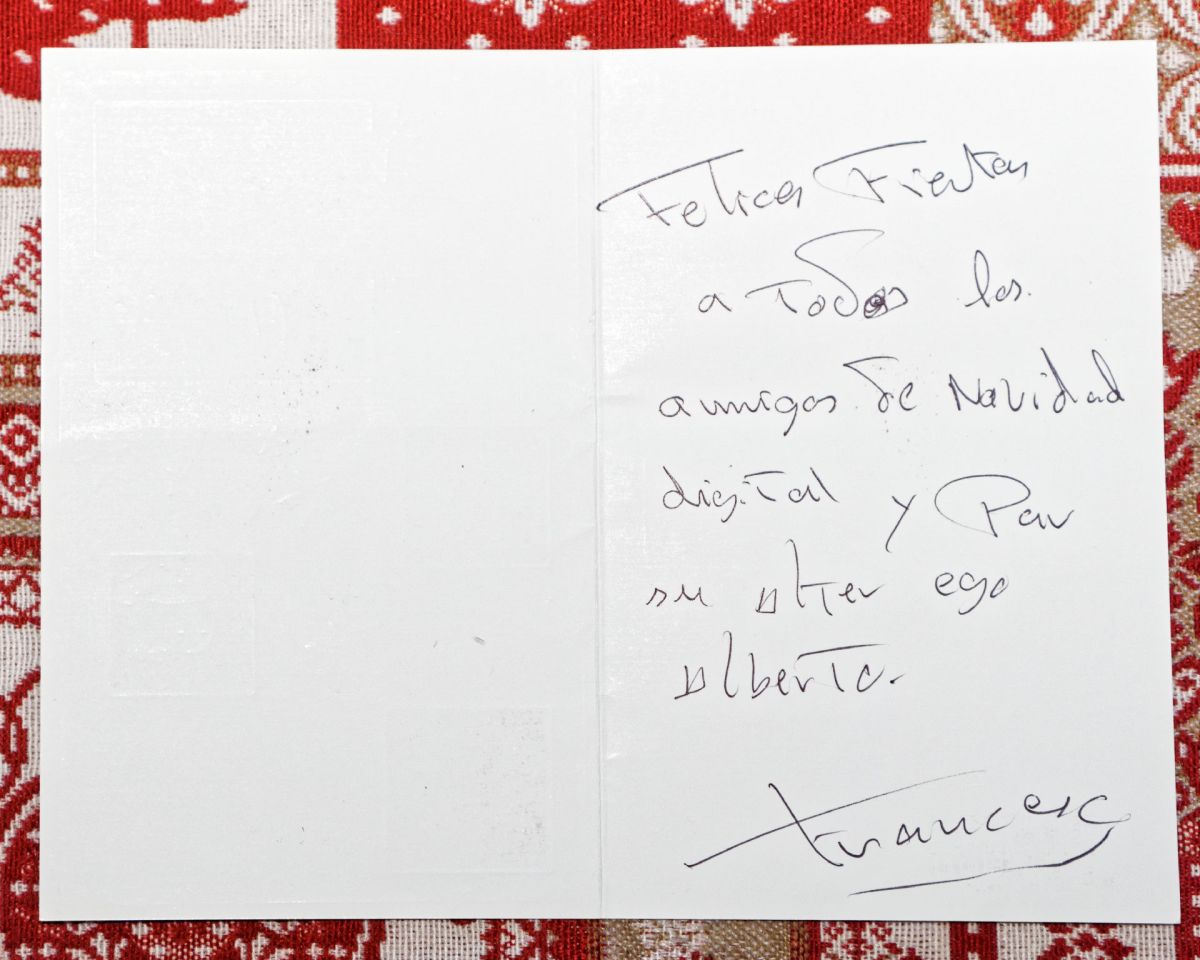 Felices Fiestas
a Todos los
amigos de Navidad
digital y Par
su alter ego
Alberto.
Francesc